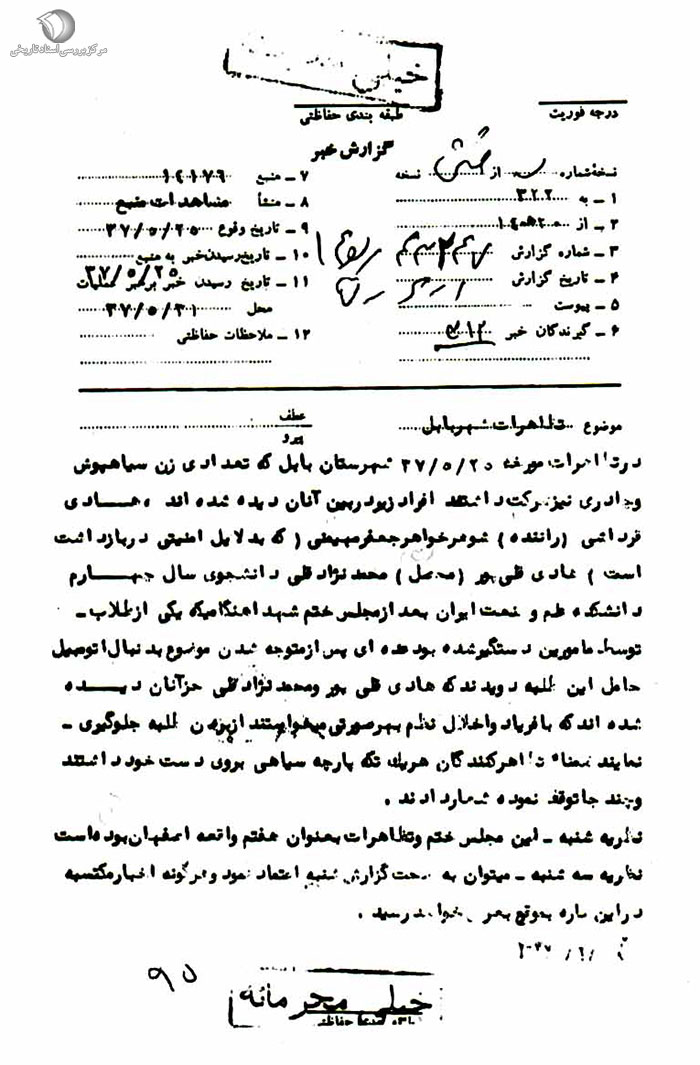 مرکز بررسی اسناد تاریخی
خیلی
درجه فوریت
طبقه بندی حفاظتی
گزارش خبر
نسخهٔ شماره از نسخه
۱ ـ به ۳۲۲
۲ ـ از
۳ ـ شماره گزارش
۴ ـ تاریخ گزارش
۵ ـ پیوست
۶ ـ گیرندگان خبر ۳۱۲
۷ ـ منبع ۱۲۱۷۹
۸ ـ منشأ مشاهدات منبع
۹ ـ تاریخ وقوع ۳۷/۵/۲۵
۱۰ ـ تاریخ رسیدن خبر به منبع
۱۱ ـ تاریخ رسیدن خبر برهبر عملیات ۳۷/۵/۲۵
محل ۳۷/۵/۳۱
۱۲ ـ ملاحظات حفاظتی
موضوع تظاهرات شهر بابل
عطف
پیرو
در تظاهرات مورخه ۳۷/۵/۲۵ شهرستان بابل که تعدادی زن سیاهپوش
و چادری نیز شرکت داشتند افراد زیر در بین آنان دیده شده اند ، هادی
(راننده ) شوهر خواهر جعفر ( که بدلایل امنیتی در بازداشت
است ) هادی قلی پور (محصل ) محمد نژادقلی دانشجوی سال چهارم
دانشکده علم و صنعت ایران بعد از مجلس ختم شهدا هنگامیکه یکی از طلاب ـ
توسط مامورین دستگیر شده بود عده ای پس از متوجه شدن موضوع بدنبال اتومبیل
حامل این طلبه دویدند که هادی قلی پور و محمد نژادقلی جز آنان دیده
شده اند که با فریاد و اخلال نظم بهر صورتی میخواستند از بردن طلبه جلوگیری ـ
نمایند ضمناً تظاهر کنندگان هریک تکه پارچه سیاهی بروی دست خود داشتند
و چند جا توقف نموده شعار دادند .
نظریه شنبه ـ این مجلس ختم و تظاهرات بعنوان هفتم واقعه اصفهان بوده است
نظریه سه شنبه ـ میتوان به صحت گزارش شنبه اعتماد نمود و هرگونه اخبار مکتسبه
در این باره بموقع بعرض خواهد رسید .
۹۵
خیلی محرمانه
طبقه بندی حفاظتی